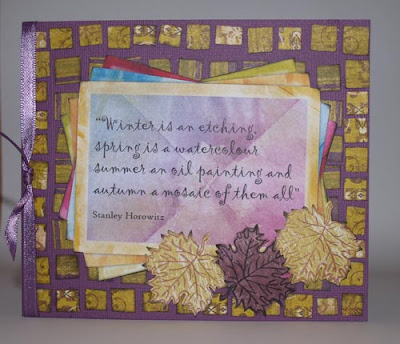 "Winter is an etching,
spring is a watercolour
summer an oil painting and
autumn a mosaic of them all"
Stanley Horowitz